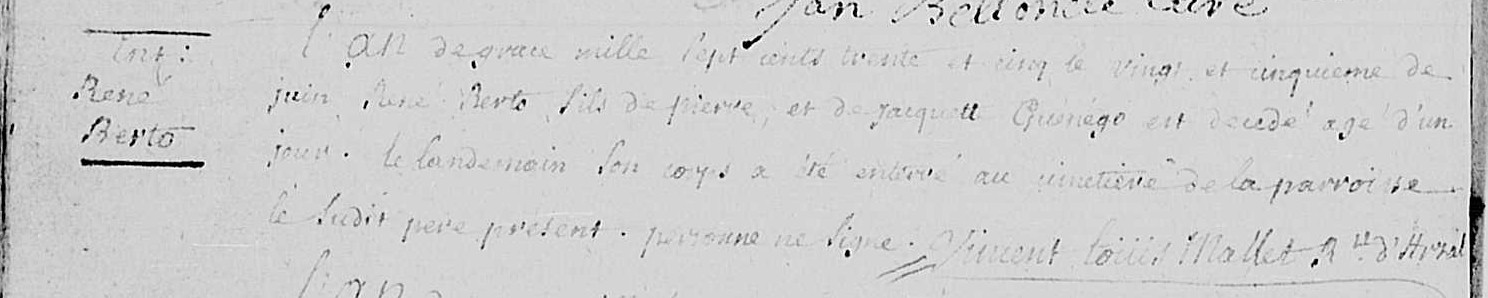 Jan Belloncle curé
Int:
René
Berto
l'an de grace mille sept cents trente et cinq le vingt et cinquieme de
juin René Berto fils de pierre, et de jacquett Guénégo est decedé agé d'un
jour. le landemain son corps a été enterré au cimetiere de la parroisse
le sudit pere présent. personne ne signe. Vincent Loüis Mallet R.tt d'Arzal
l'an